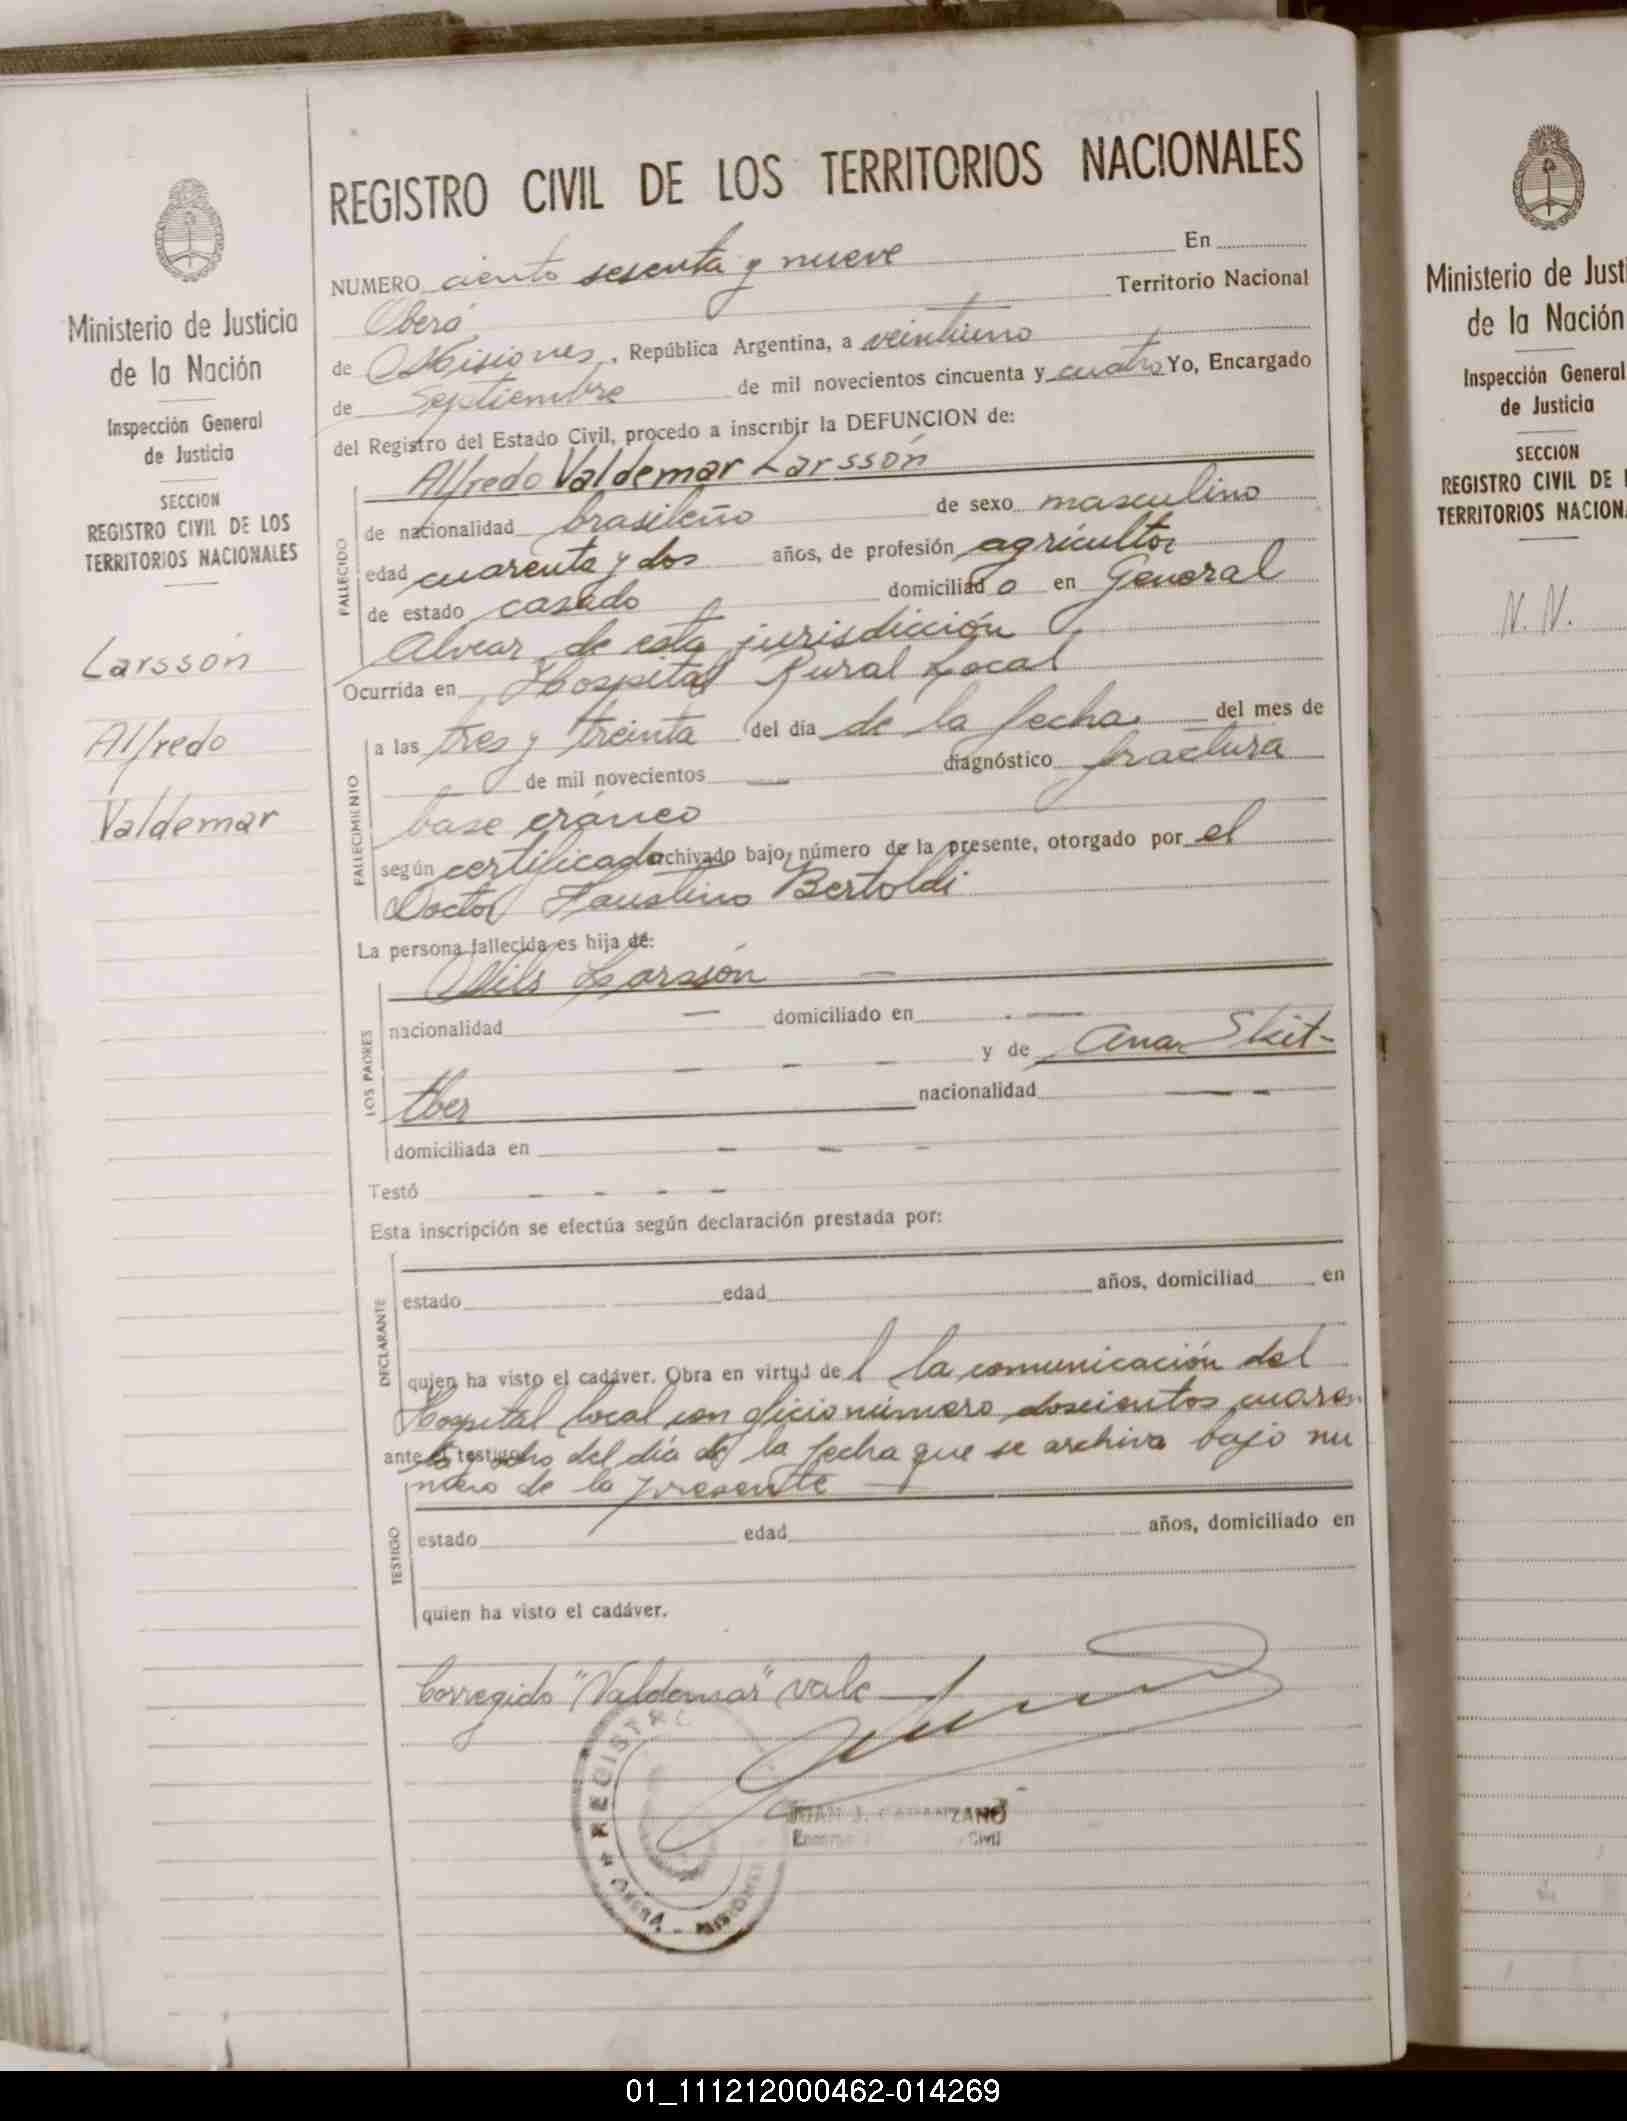 REGISTRO CIVIL DE LOS TERRITORIOS NACIONALES
NUMERO ciento sesenta y nueve En
Oberá Territorio Nacional
de Misiones, República Argentina, a veintiuno
de Septiembre de mil novecientos cincuenta y cuatro Yo, Encargado
del Registro del Estado Civil, procedo a inscribir la DEFUNCION de:
Alfredo Valdemar Larssón
de nacionalidad brasileño de sexo masculino
edad cuarenta y dos años, de profesión agricultor
de estado casado domiciliado en General
Alvear de esta jurisdicción
Ocurrida en Hospital Rural Local
a las tres y treinta del día de la fecha del mes de
de mil novecientos — diagnóstico fractura
base cráneo
según certificado archivado bajo número de la presente, otorgado por el
Doctor Faustino Bertoldi
La persona fallecida es hija de:
Nils Larssón —
nacionalidad — domiciliado en —
— — — y de Ana Skit-
tber nacionalidad — —
domiciliada en — — —
Testó — — — —
Esta inscripción se efectúa según declaración prestada por:
estado edad años, domiciliad en
quien ha visto el cadáver. Obra en virtud de la comunicación del
Hospital local con oficio número doscientos cuaren
ante el testigo ta y ocho del día de la fecha que se archiva bajo nu
mero de la presente —
estado edad años, domiciliado en
quien ha visto el cadáver.
Corregido "Valdemar" vale
REGISTRO
OBERÁ - MISIONES
JUAN J.
Civil
FALLECIDO
FALLECIMIENTO
LOS PADRES
DECLARANTE
TESTIGO
Ministerio de Justicia
de la Nación
Inspección General
de Justicia
SECCION
REGISTRO CIVIL DE LOS
TERRITORIOS NACIONALES
Larssón
Alfredo
Valdemar
Ministerio de Justi
de la Nación
Inspección General
de Justicia
SECCION
REGISTRO CIVIL DE
TERRITORIOS NACION
N. N.
01_111212000462-014269